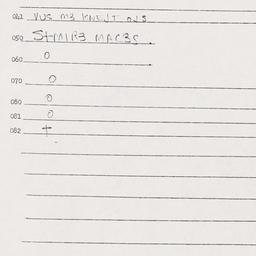 042 VUS M3 KNEJT OJS
050 StMIRE MACES.
060 0
070 0
080 0
081 0
082 +